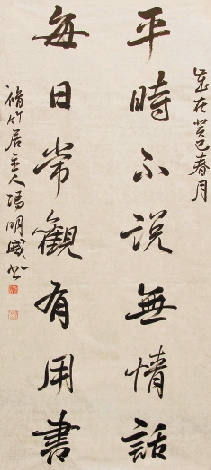 歲在癸巳春月
平時不説無情話
每日常觀有用書
脩竹居主人馮明盛書